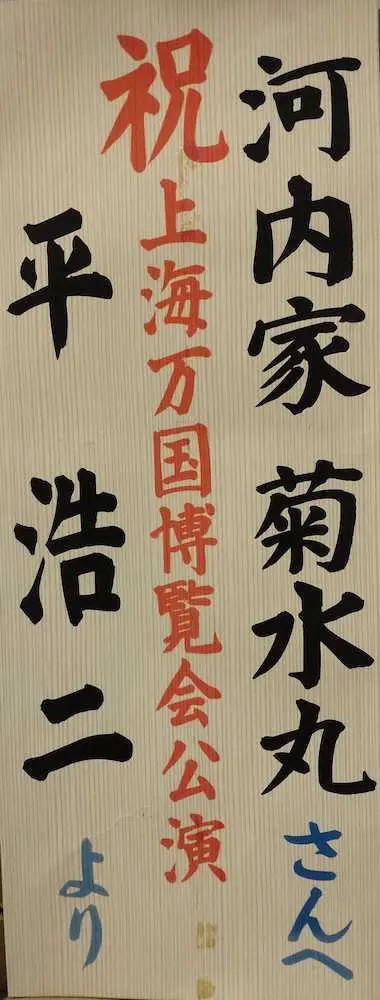 河内家 菊水丸さんへ
祝上海万国博覧会公演
平 浩二より